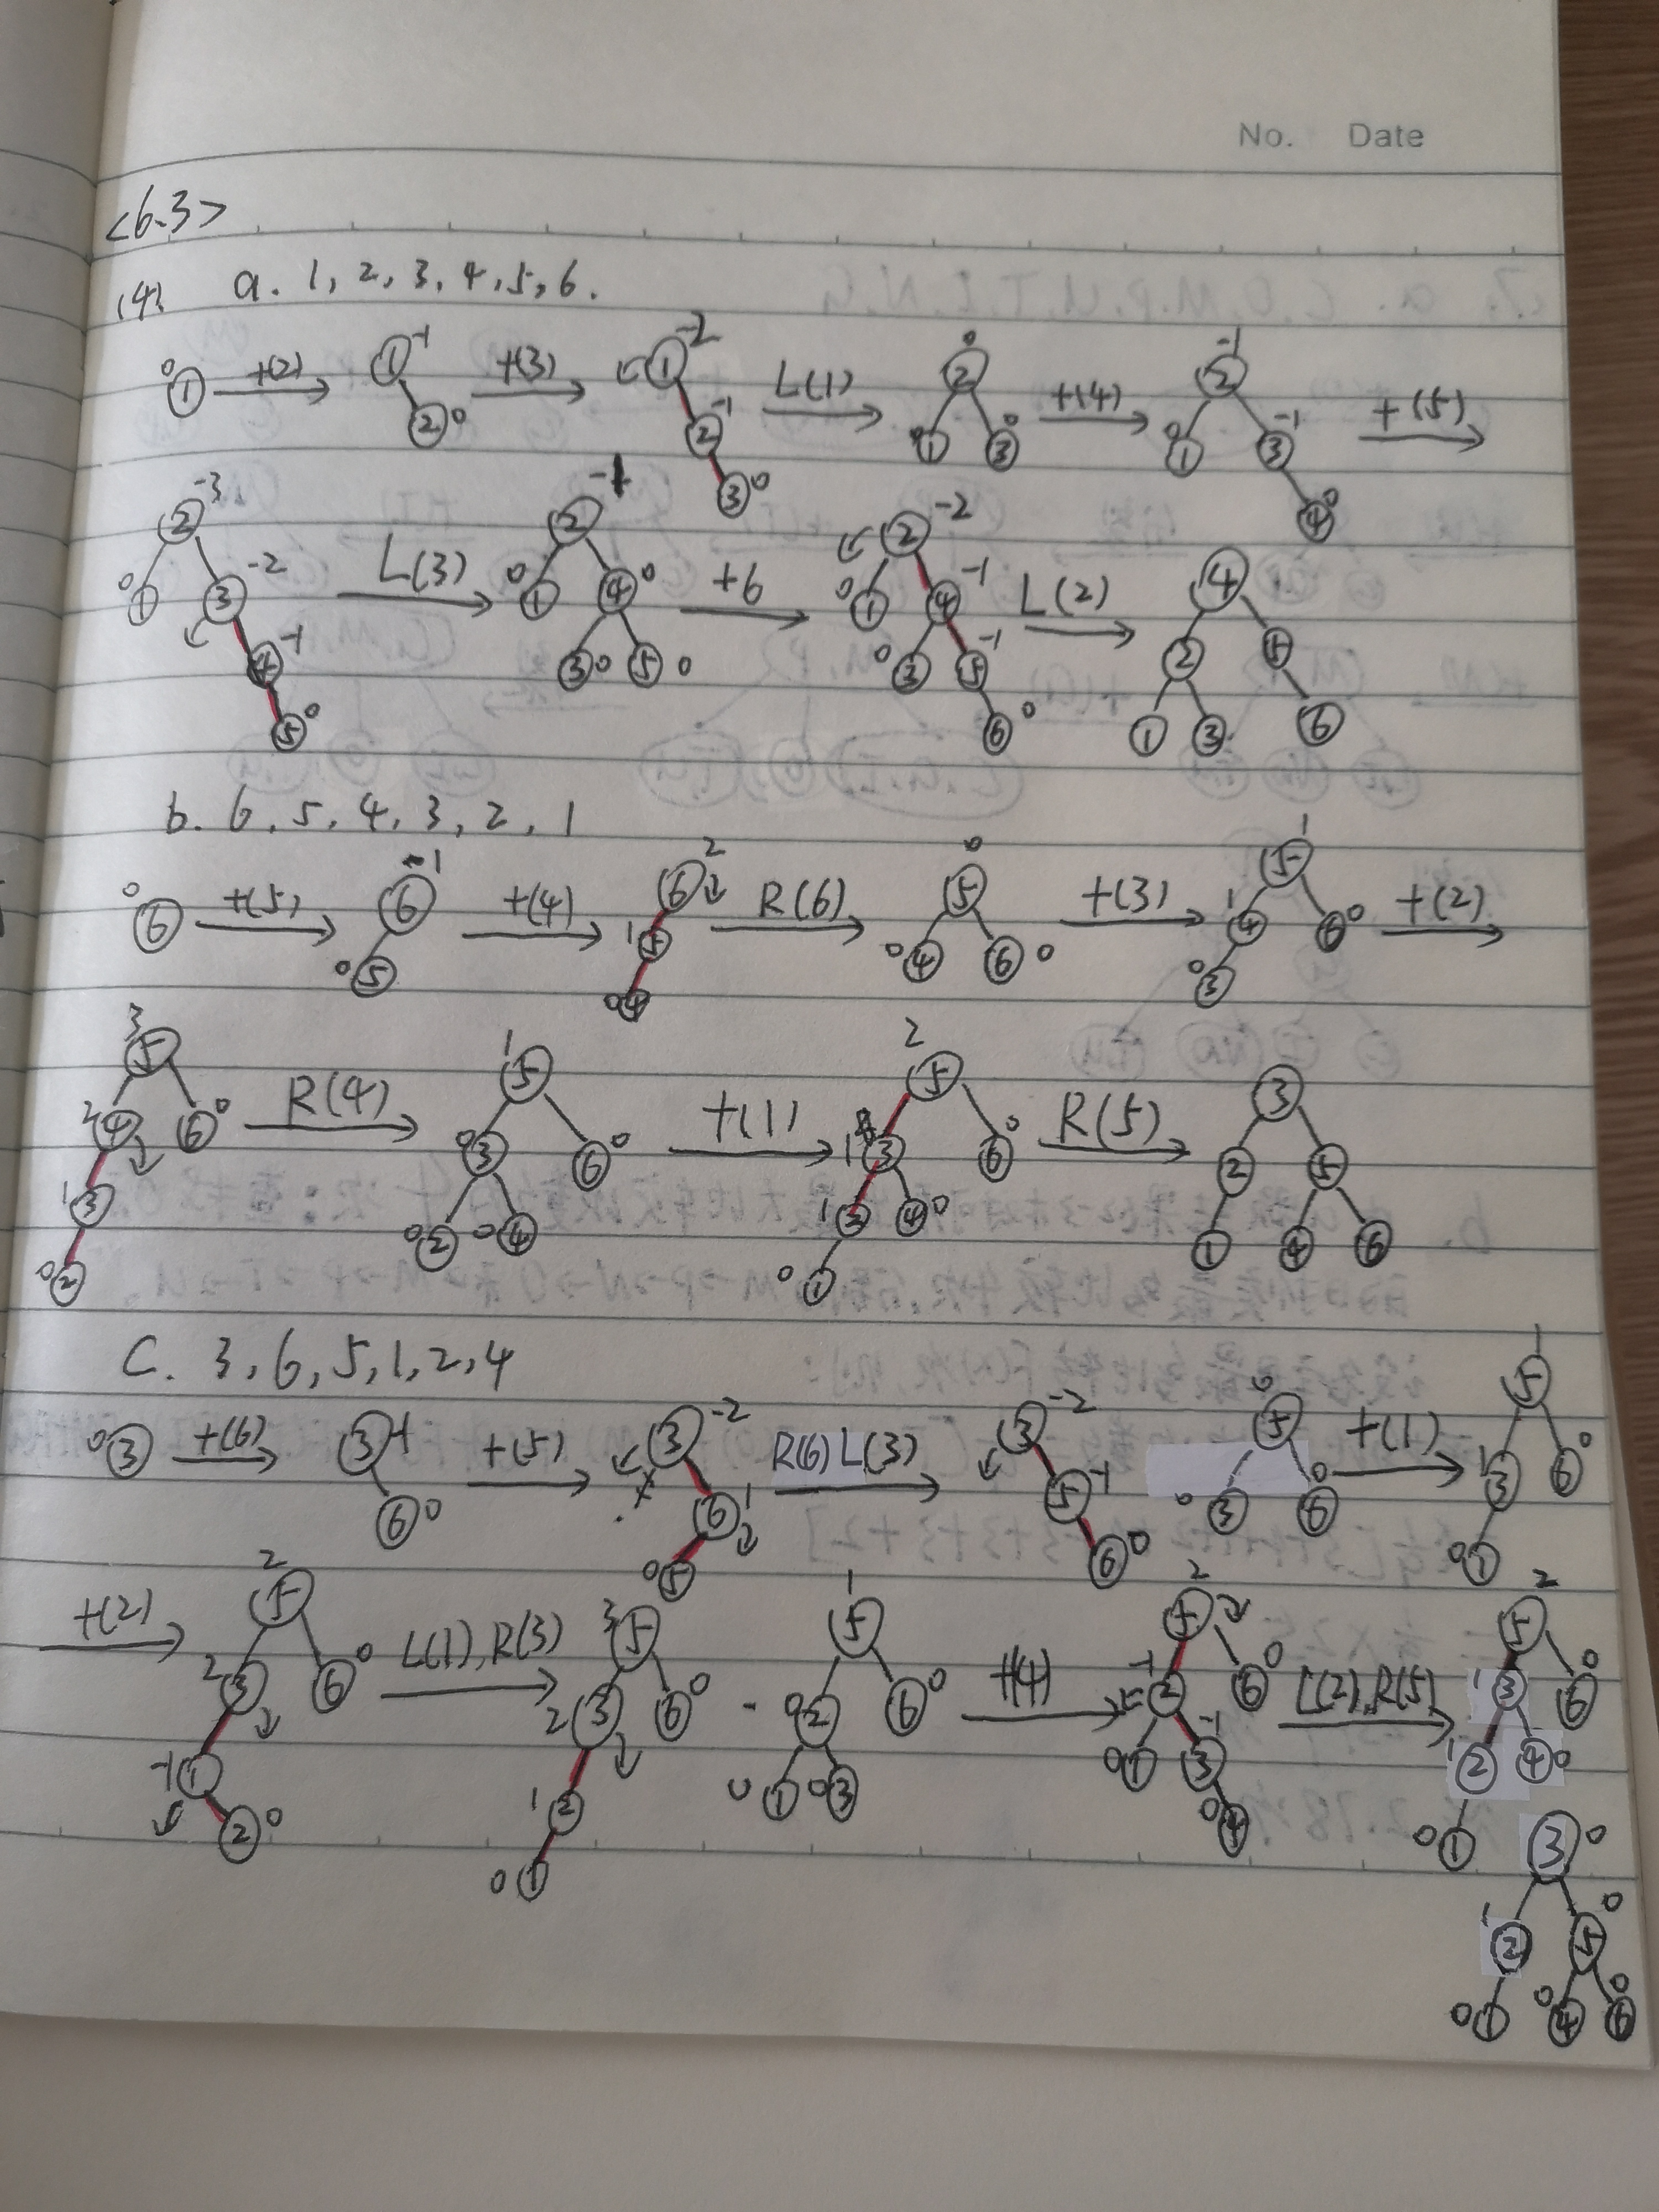 No. Date
<6.3>
(4). a. 1, 2, 3, 4, 5, 6.
0 1 +(2) 1 -1 2 0 +(3) 1 -2 2 -1 3 0 L(1) 2 0 1 0 3 0 +(4) 2 -1 1 0 3 -1 4 0 +(5)
2 -3 0 1 3 -2 4 -1 5 0 L(3) 2 -1 0 1 4 0 3 0 5 0 +6 2 -2 0 1 4 -1 0 3 5 -1 6 0 L(2) 4 2 5 1 3 6
b. 6, 5, 4, 3, 2, 1
0 6 +(5) 6 1 0 5 +(4) 6 2 1 5 0 4 R(6) 5 0 0 4 6 0 +(3) 5 1 1 4 6 0 0 3 +(2)
3 5 2 4 6 0 1 3 0 2 R(4) 1 5 0 3 6 0 0 2 0 4 +(1) 2 5 1 3 6 0 1 2 4 0 0 1 R(5) 3 2 5 1 4 6
C. 3, 6, 5, 1, 2, 4
0 3 +(6) 3 -1 6 0 +(5) 3 -2 6 1 0 5 R(6) L(3) 3 -2 5 -1 6 0 0 5 0 3 0 6 +(1) 1 5 1 3 6 0 0 1
+(2) 2 5 2 3 6 0 -1 1 2 0 L(1), R(3) 3 5 2 3 6 0 1 2 0 1 1 5 0 2 6 0 0 1 0 3 +(4) 2 5 -1 2 6 0 0 1 3 -1 0 4 L(2), R(5) 2 5 1 3 6 0 1 2 4 0 0 1
3 0 1 2 5 0 0 1 0 4 6 0